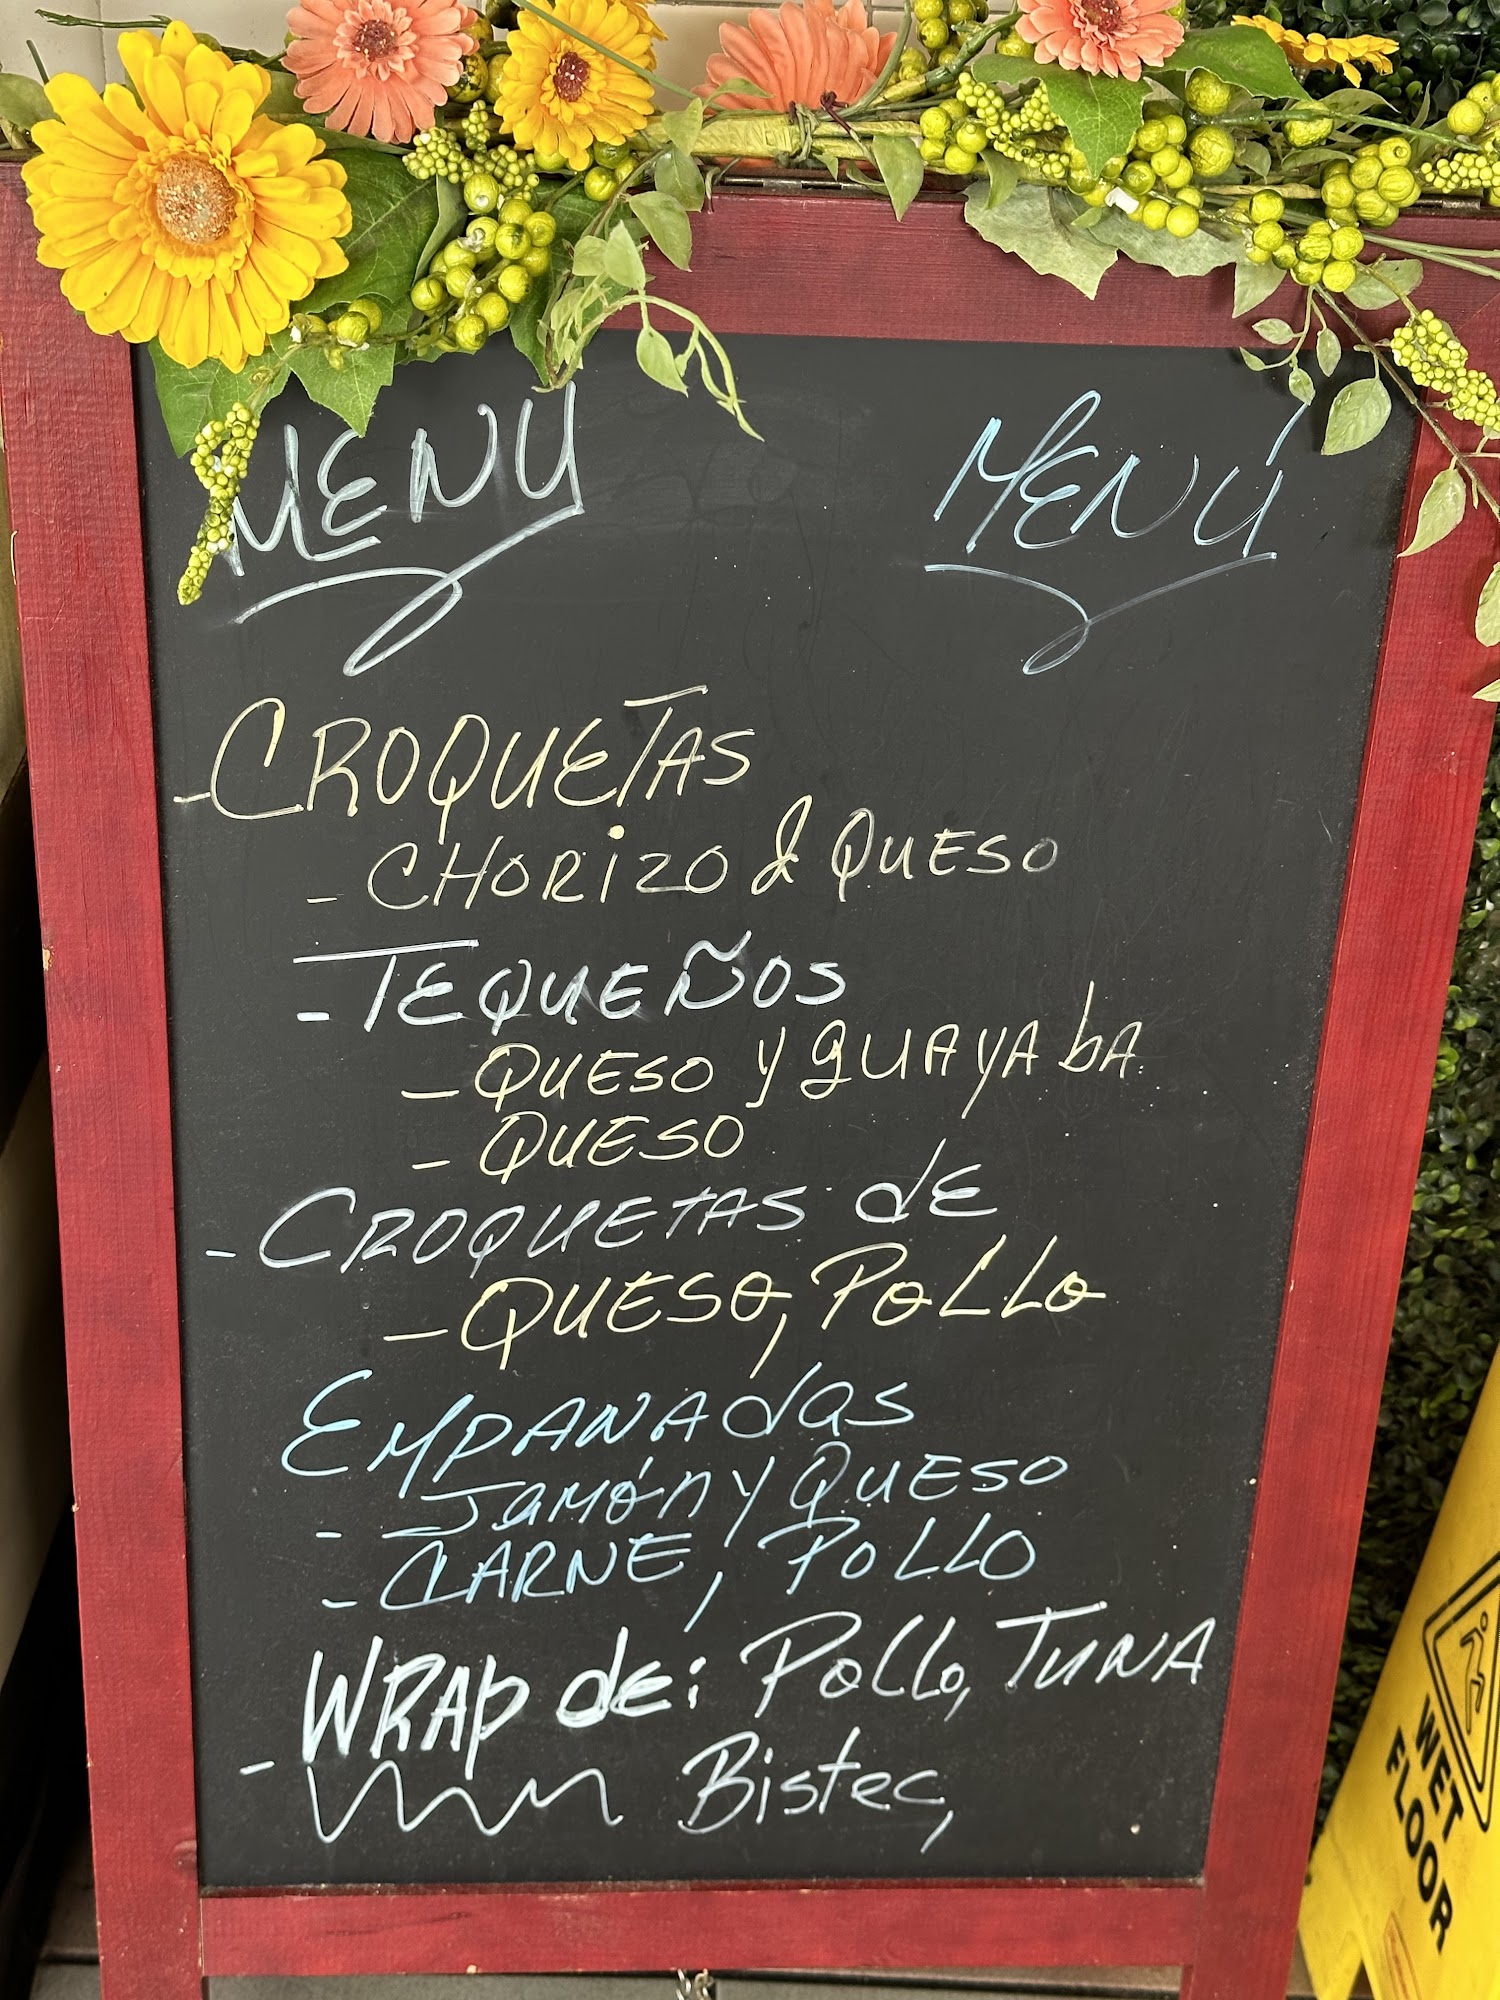 MENU MENÚ
- CROQUETAS
- CHORIZO & QUESO
- TEQUEÑOS
- QUESO Y GUAYABA
- QUESO
- CROQUETAS dE
- QUESO, POLLO
EMPANAdas
- JAMÓN Y QUESO
- CARNE, POLLO
- WRAP de: Pollo, TUNA
Bistec,
WET
FLOOR